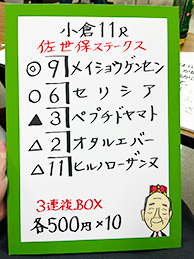 小倉11R
佐世保ステークス
◎9 メイショウゲンセン
○6 セリシア
▲3 ペプチドヤマト
△2 オタルエバー
△11 ヒルノローザンヌ
3連複BOX
各500円×10